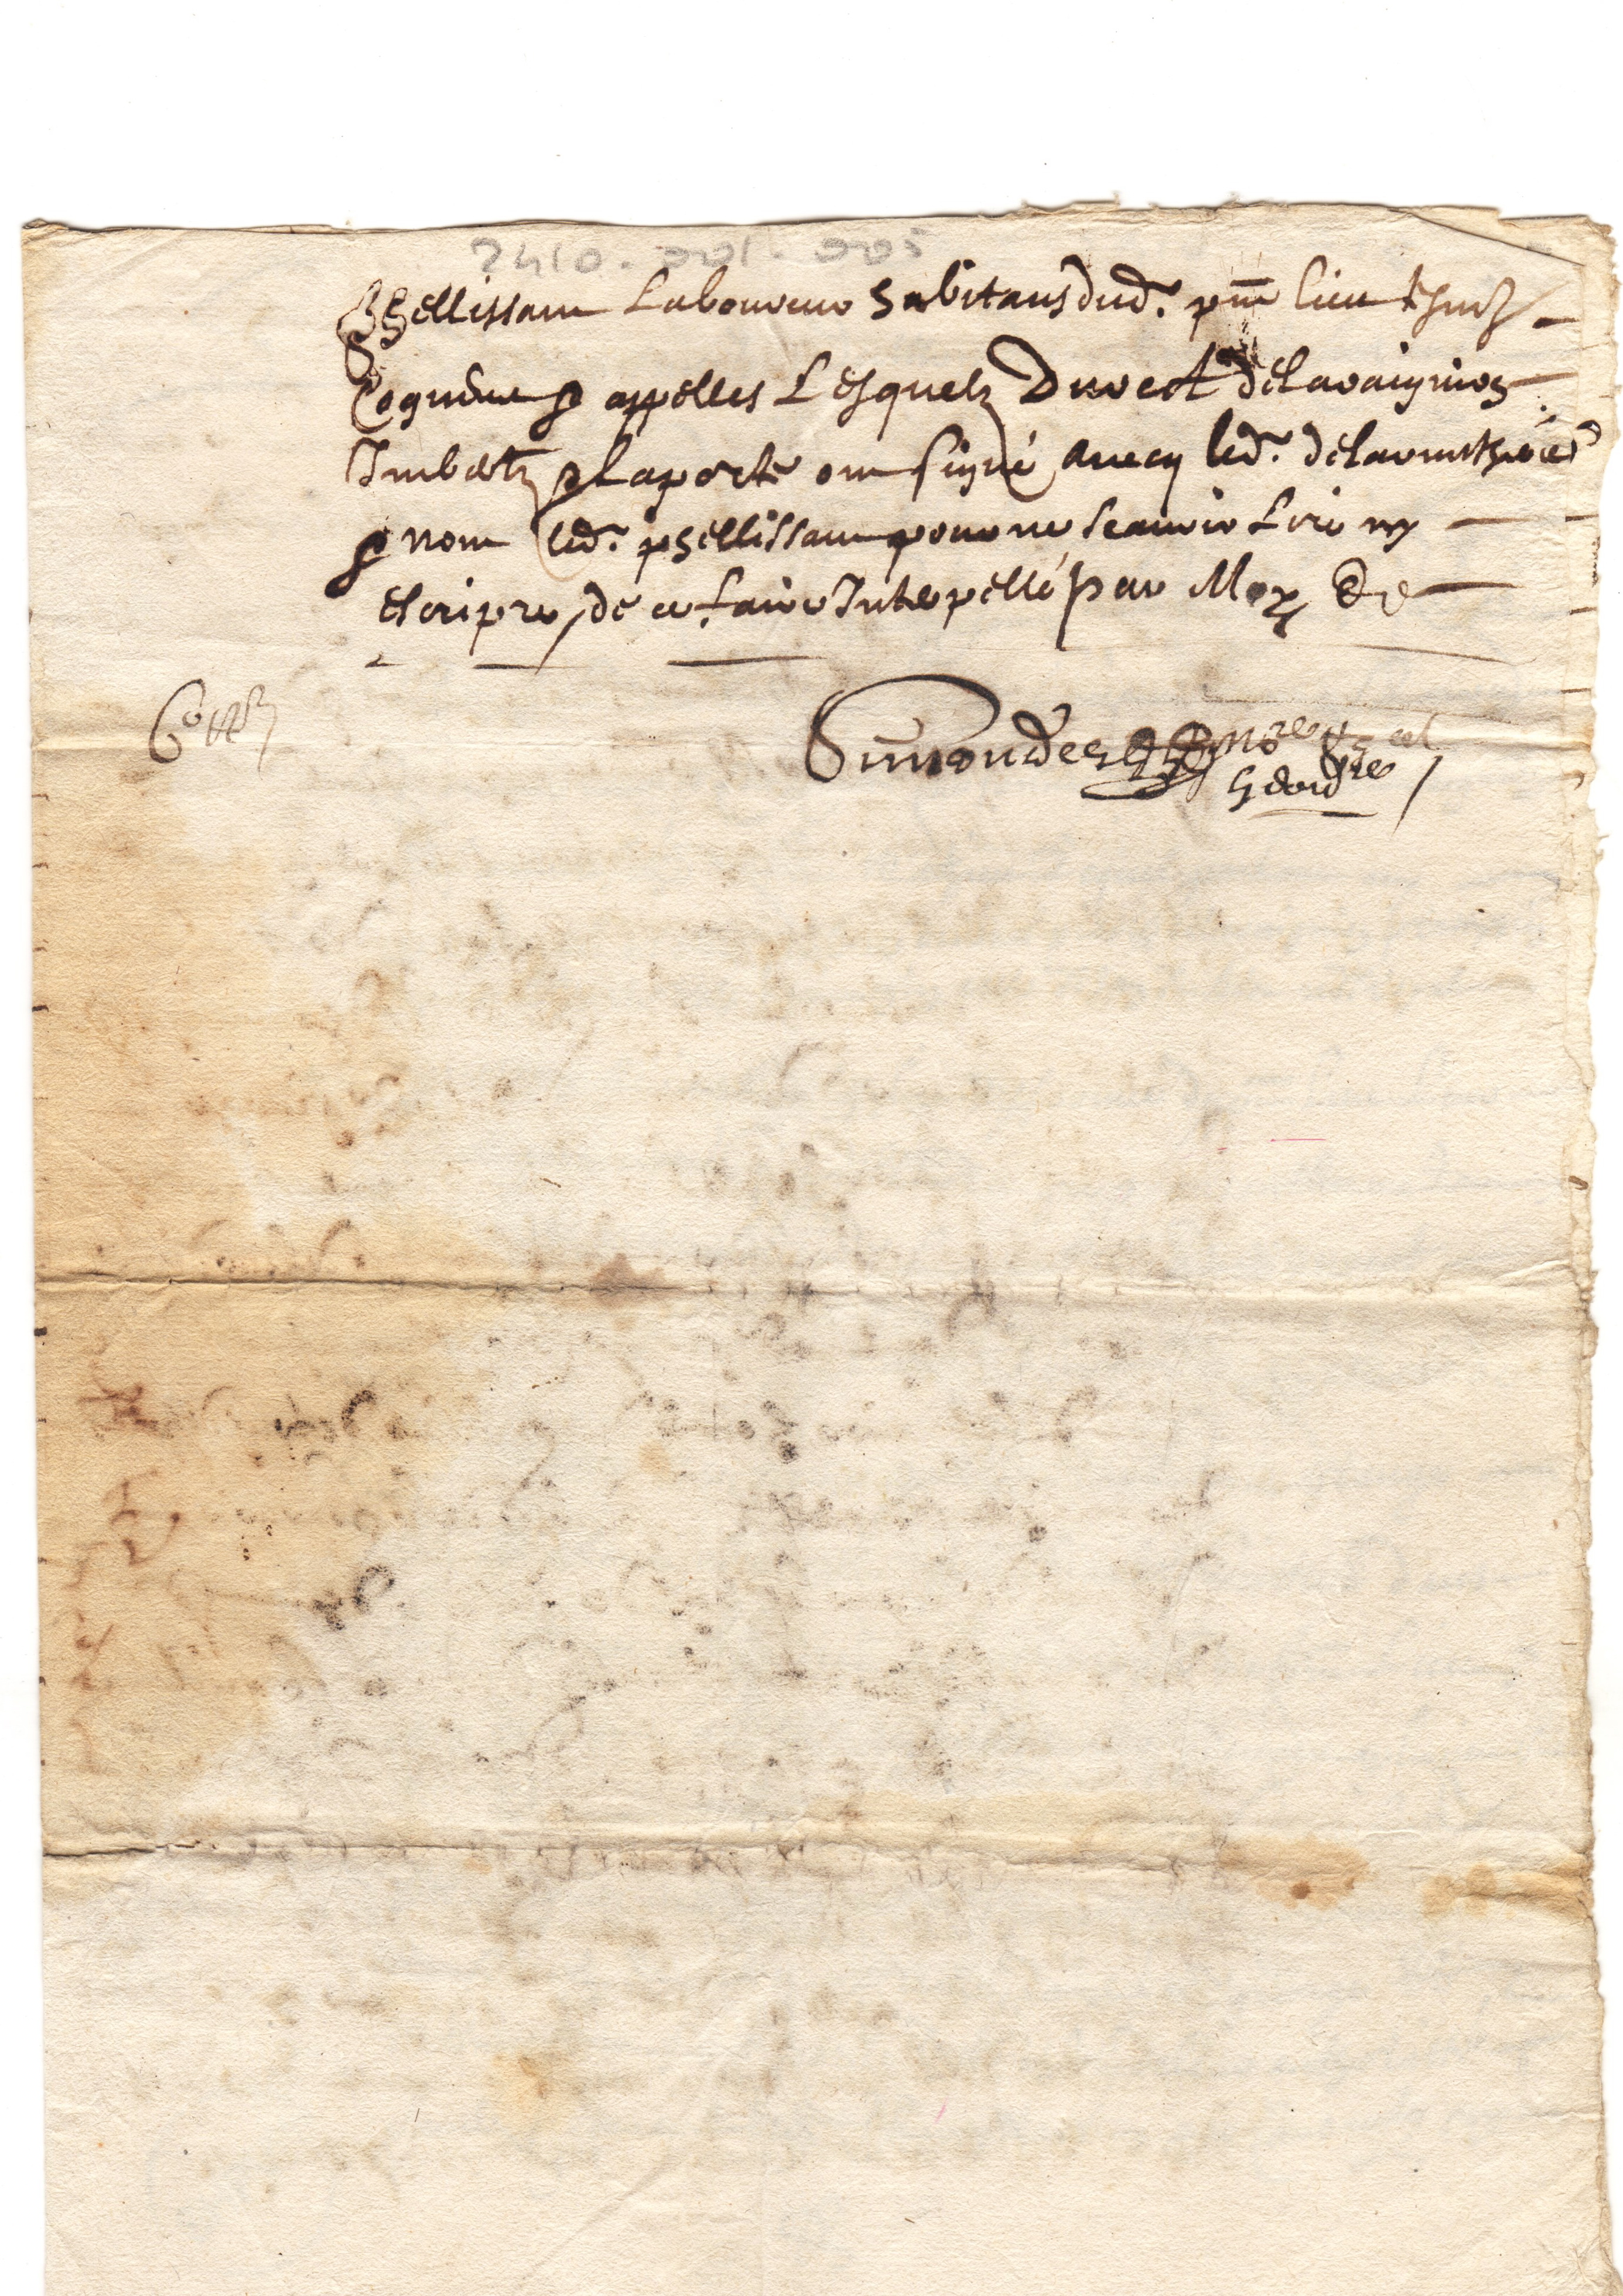 2410.001.005
phellissam Laboureur habitans dud. pnt lieu tesmoingz
Requis & appelles Lesquelz Duvert delavaignies
Imbertz & Laporte ont signé avecq led.
& nom led. phellissam pour ne scavoir Lire ny
escripre, de ce faire Interpellé par Moy &c
Simondes nore
heredre